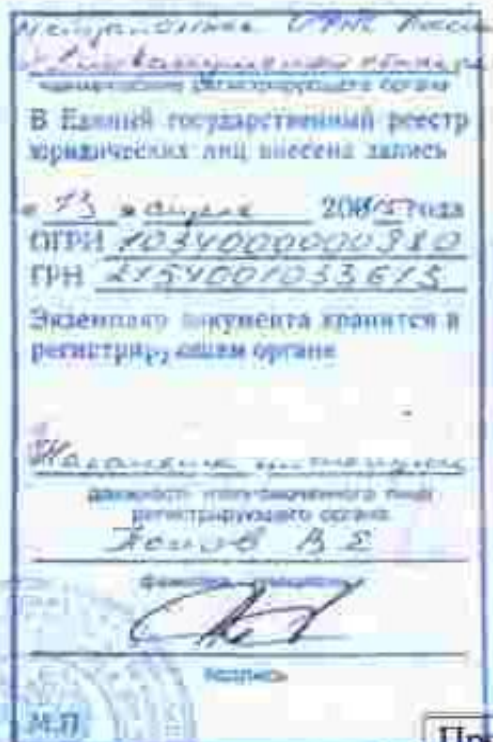 Межрайонная ИФНС России
наименование регистрирующего органа
В Единый государственный реестр
юридических лиц внесена запись
« 13 » апреля 2015 года
ОГРН 1034000000980
ГРН 2154001033613
Экземпляр документа хранится в
регистрирующем органе
должность уполномоченного лица
регистрирующего органа
В Е
фамилия, инициалы
подпись
М.П